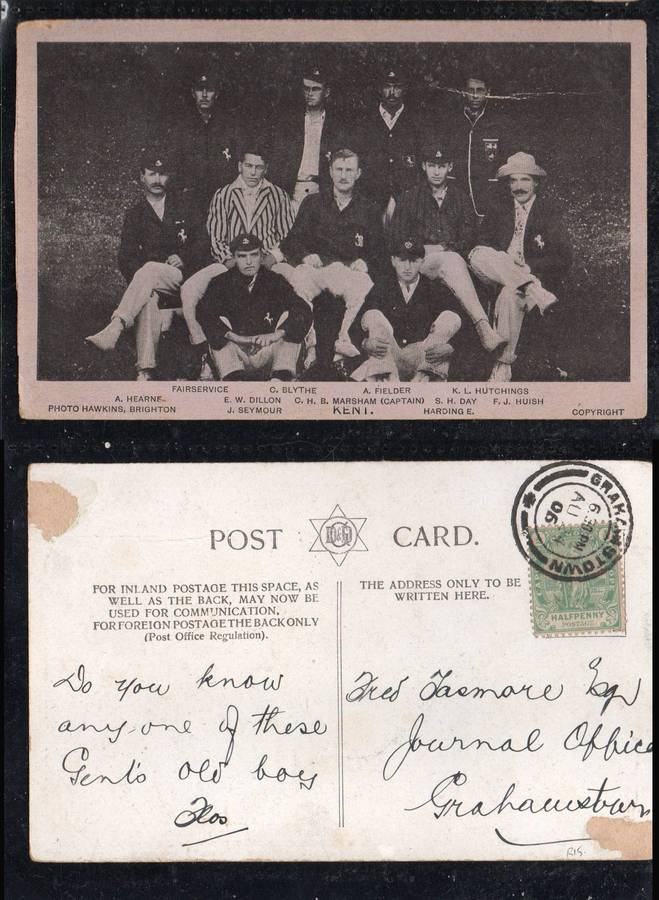 FAIRSERVICE C. BLYTHE A. FIELDER K. L. HUTCHINGS
A. HEARNE. E. W. DILLON C. H. B. MARSHAM (CAPTAIN) S. H. DAY F. J. HUISH
PHOTO HAWKINS, BRIGHTON J. SEYMOUR KENT. HARDINGE. COPYRIGHT
POST CARD.
FOR INLAND POSTAGE THIS SPACE, AS
WELL AS THE BACK, MAY NOW BE
USED FOR COMMUNICATION.
FOR FOREIGN POSTAGE THE BACK ONLY
(Post Office Regulation).
THE ADDRESS ONLY TO BE
WRITTEN HERE.
GRAHAMSTOWN
AU
06
HALFPENNY
POSTAGE
Do you know
any-one of these
Gent's old boy
Flos
Fred Tasmore Esq
Journal Office
Grahamstown